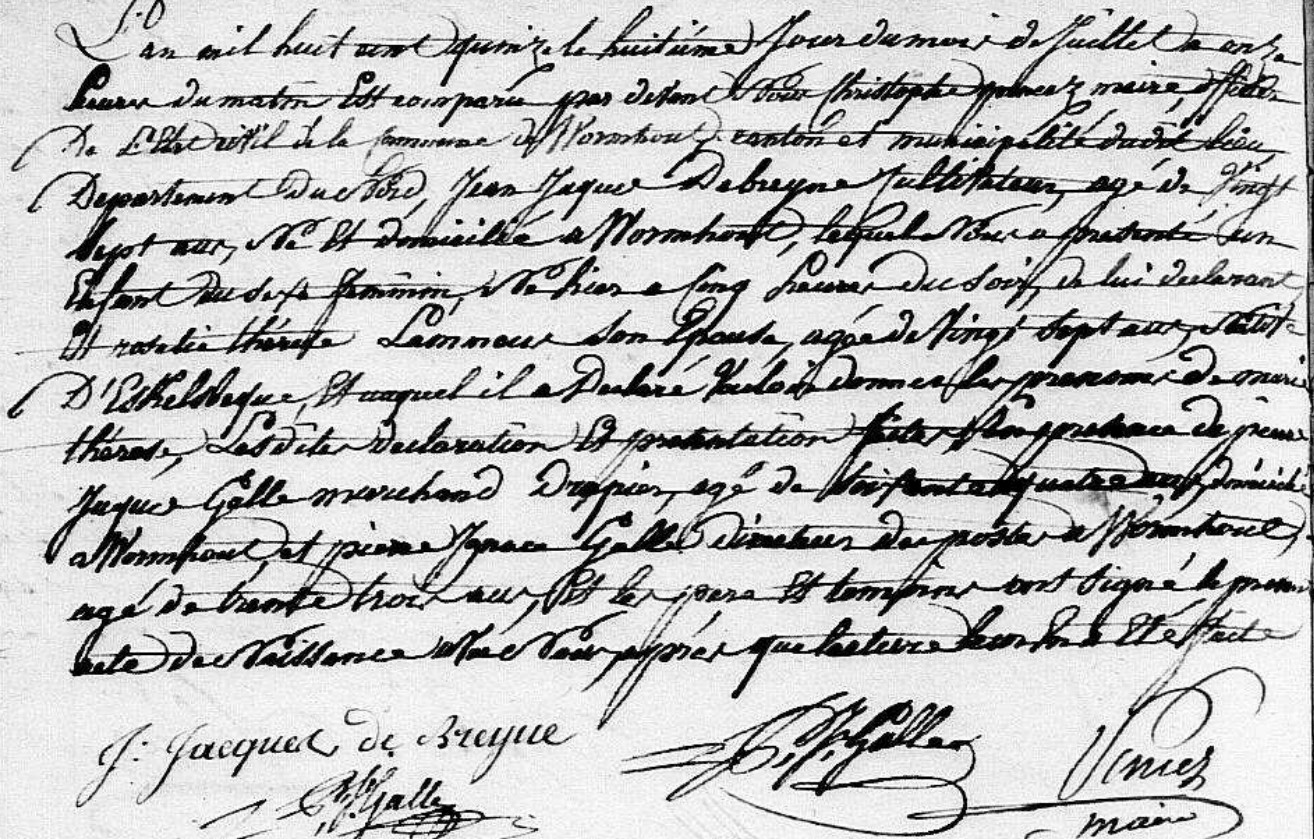 L'an mil huit cent quinze le huitième Jour du mois de Juillet a onze
heures du matin Est comparu par devant Nous Christophe maire, officier
De L'Etat civil de la Commune de Wormhout, canton et municipalité dudit lieu
Departement du Nord, Jean Jaque Debreyne Cultivateur, agé de Vingt
sept ans, Né Et domicilié a Wormhout, lequel Nous a presenté un
Enfant du sexe feminin, Né hier a Cinq heures du Soir, de lui declarant
Et rosalie thérese son Epouse, agée de Vingt Sept ans, Native
D'Eskelbeque, Et auquel il a Declaré Vouloir donner les prenoms de marie
thérese, Lesdites declaration Et presentation faites En presence de pierre
Jaque Galle marchand Drapier, agé de soixante quatre ans, domicilié
a Wormhout, et pierre Ignace Galle directeur des postes a Wormhout,
agé de trente trois ans, Et les pere Et temoins ont signé le present
acte de Naissance avec Nous, aprés que lecture leur en a Eté faite
J: Jacques de Breyne
P. J. Galle
P. J. Galle
maire